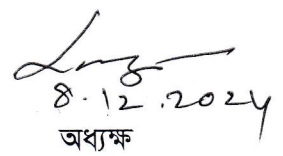 8.12.2024
অধ্যক্ষ